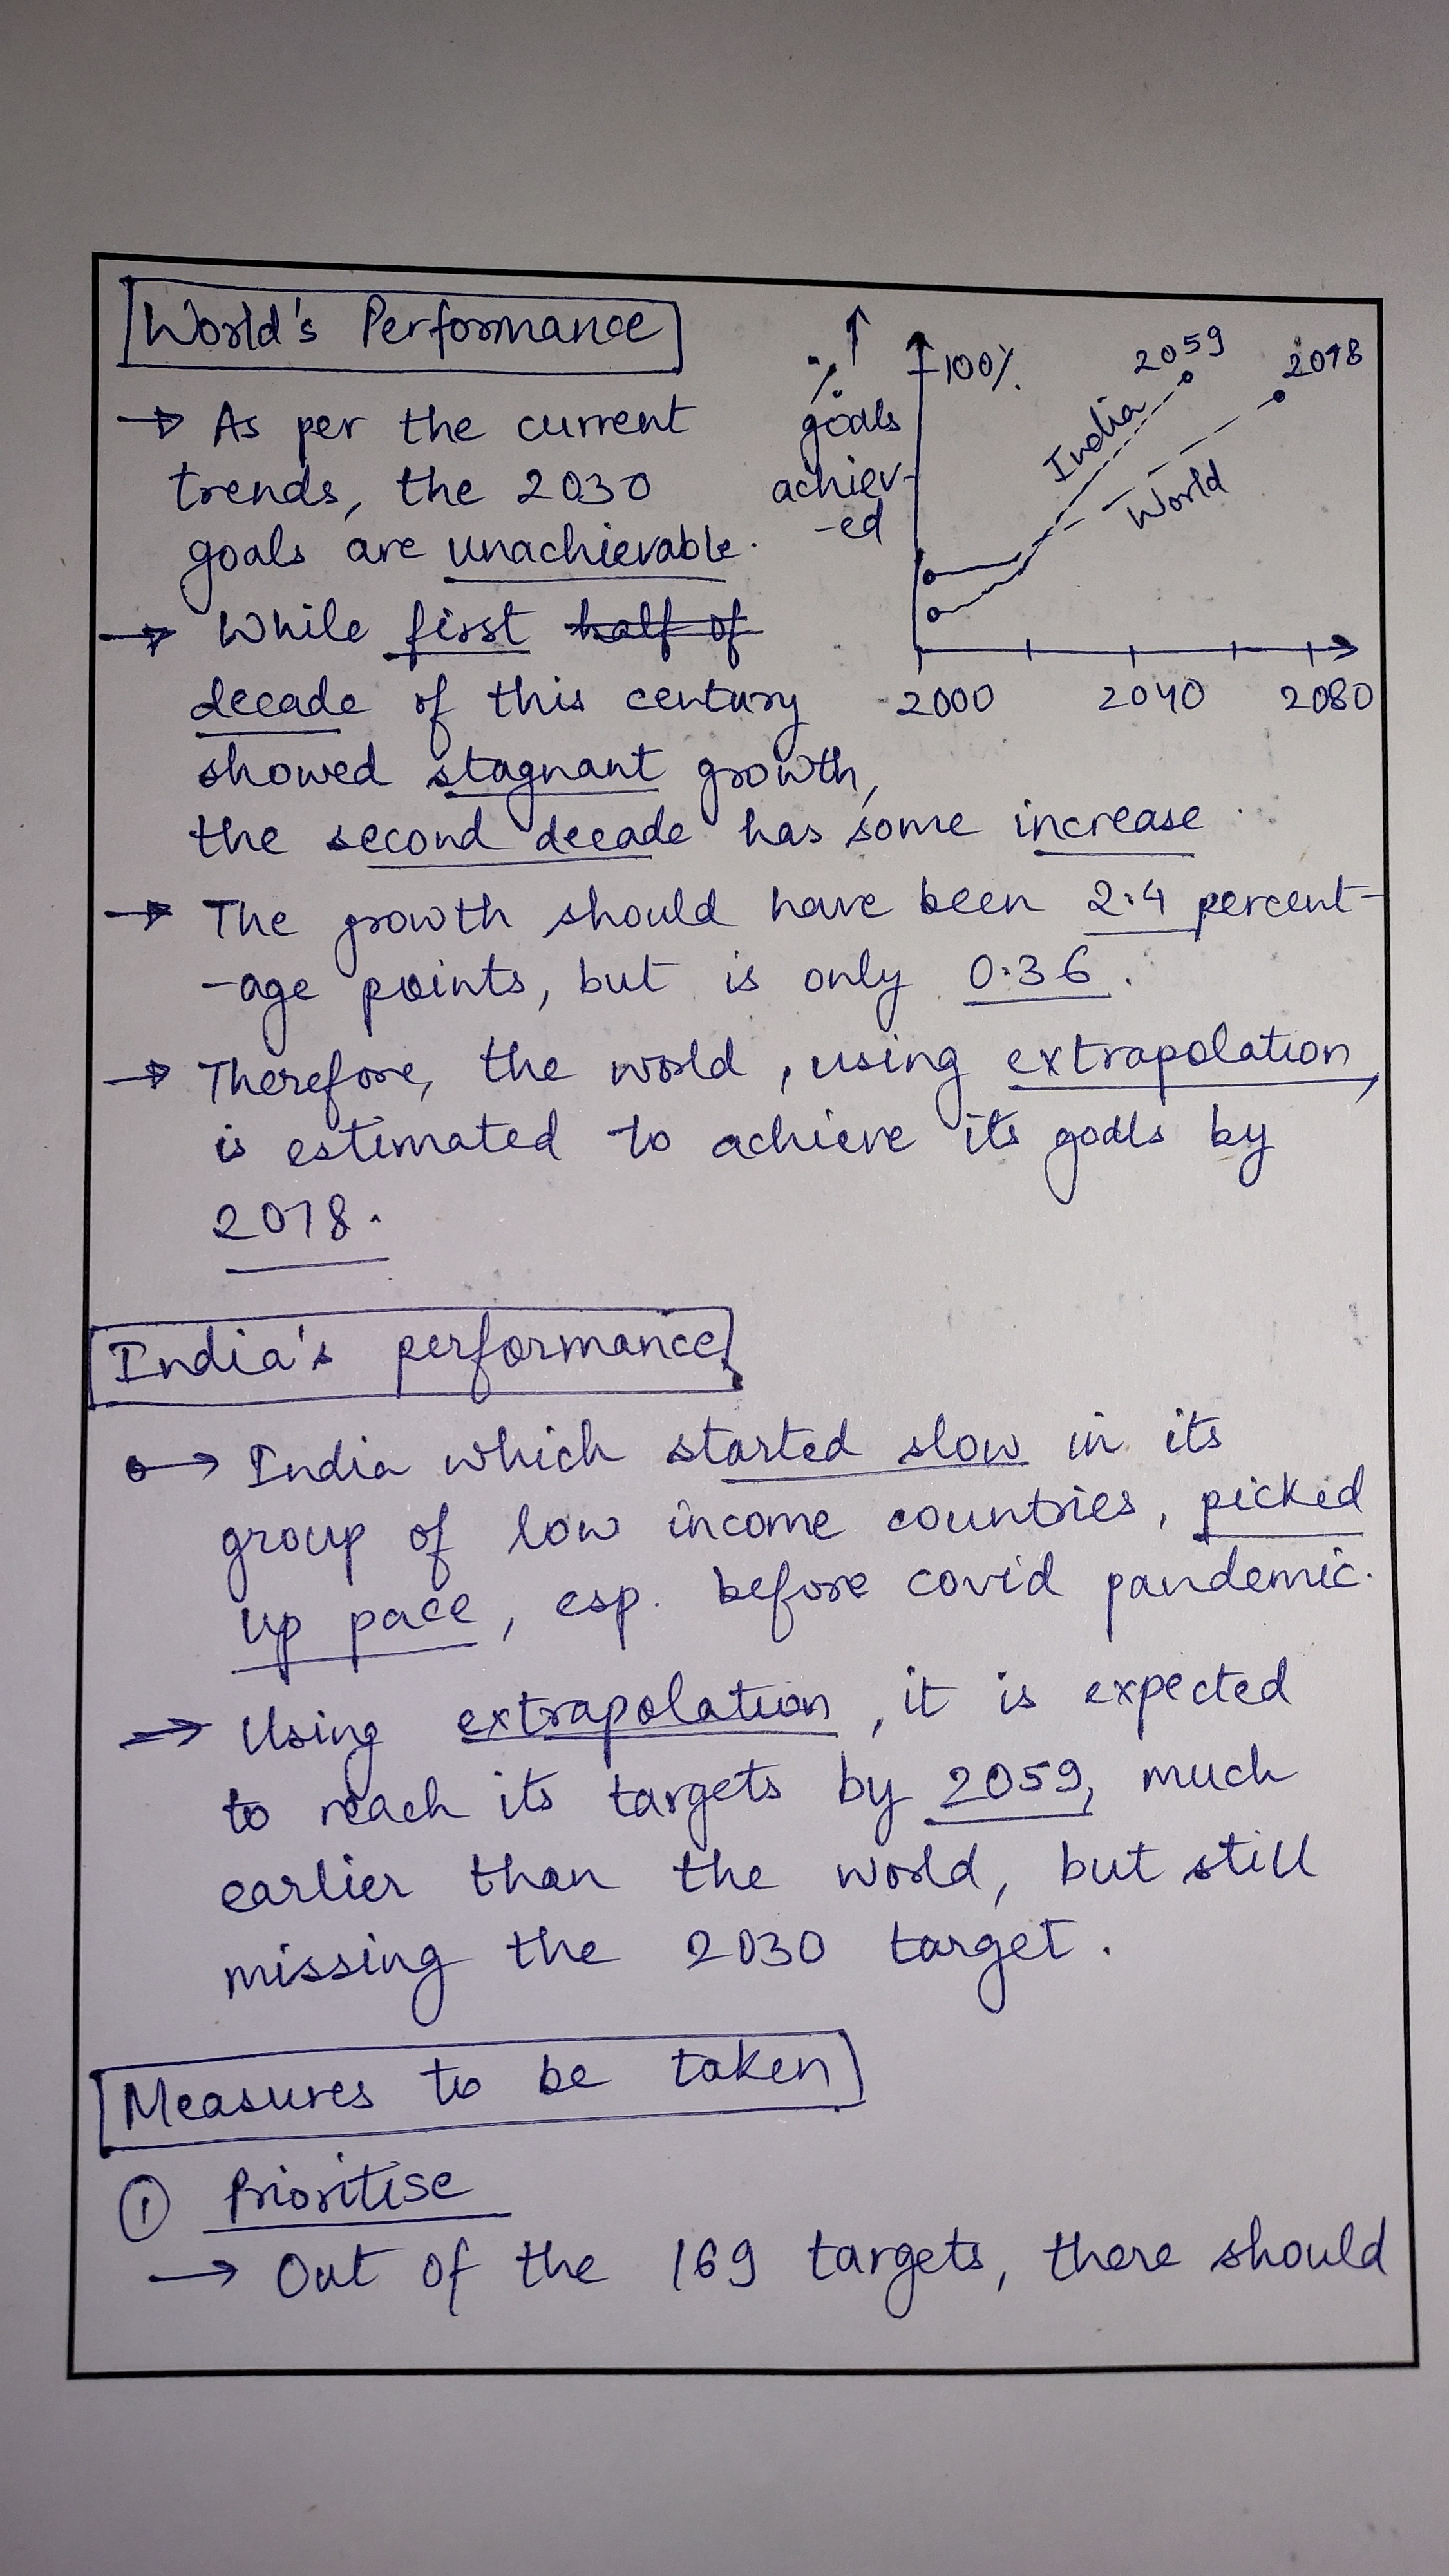 World's Performance
→ As per the current
trends, the 2030
goals are unachievable.
→ While first half of
decade of this century
showed stagnant growth,
the second decade has some increase
→ The growth should have been 2.4 percent-
-age points, but is only 0.36.
→ Therefore, the world, using extrapolation,
is estimated to achieve its goals by
2078.
↑
%
goals
achiev-
-ed
100%
2059
2078
India
World
2000 2040 2080
India's performance
→ India which started slow in its
group of low income countries, picked
up pace, esp. before covid pandemic.
→ Using extrapolation, it is expected
to reach its targets by 2059, much
earlier than the world, but still
missing the 2030 target.
Measures to be taken
① Prioritise
→ Out of the 169 targets, there should